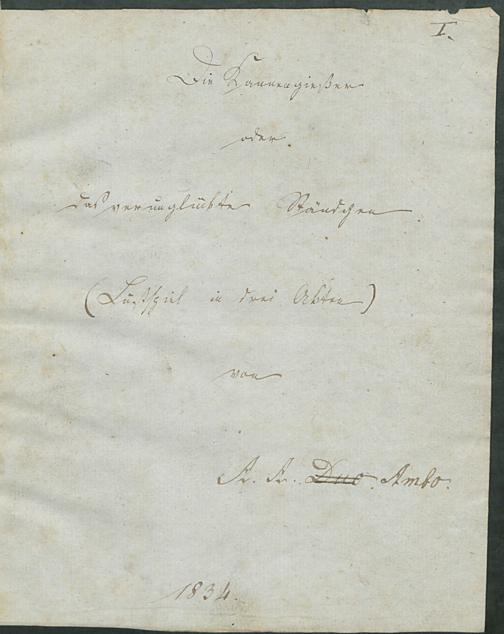 I.
Die Kannengießer
oder
das verunglückte Ständchen
(Lustspiel in drei Akten)
von
Duo Ambo.
1834.